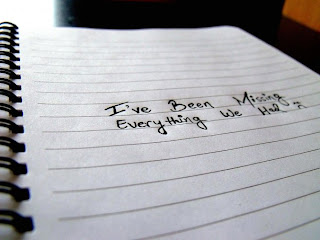 I've Been Missing
Everything We Had